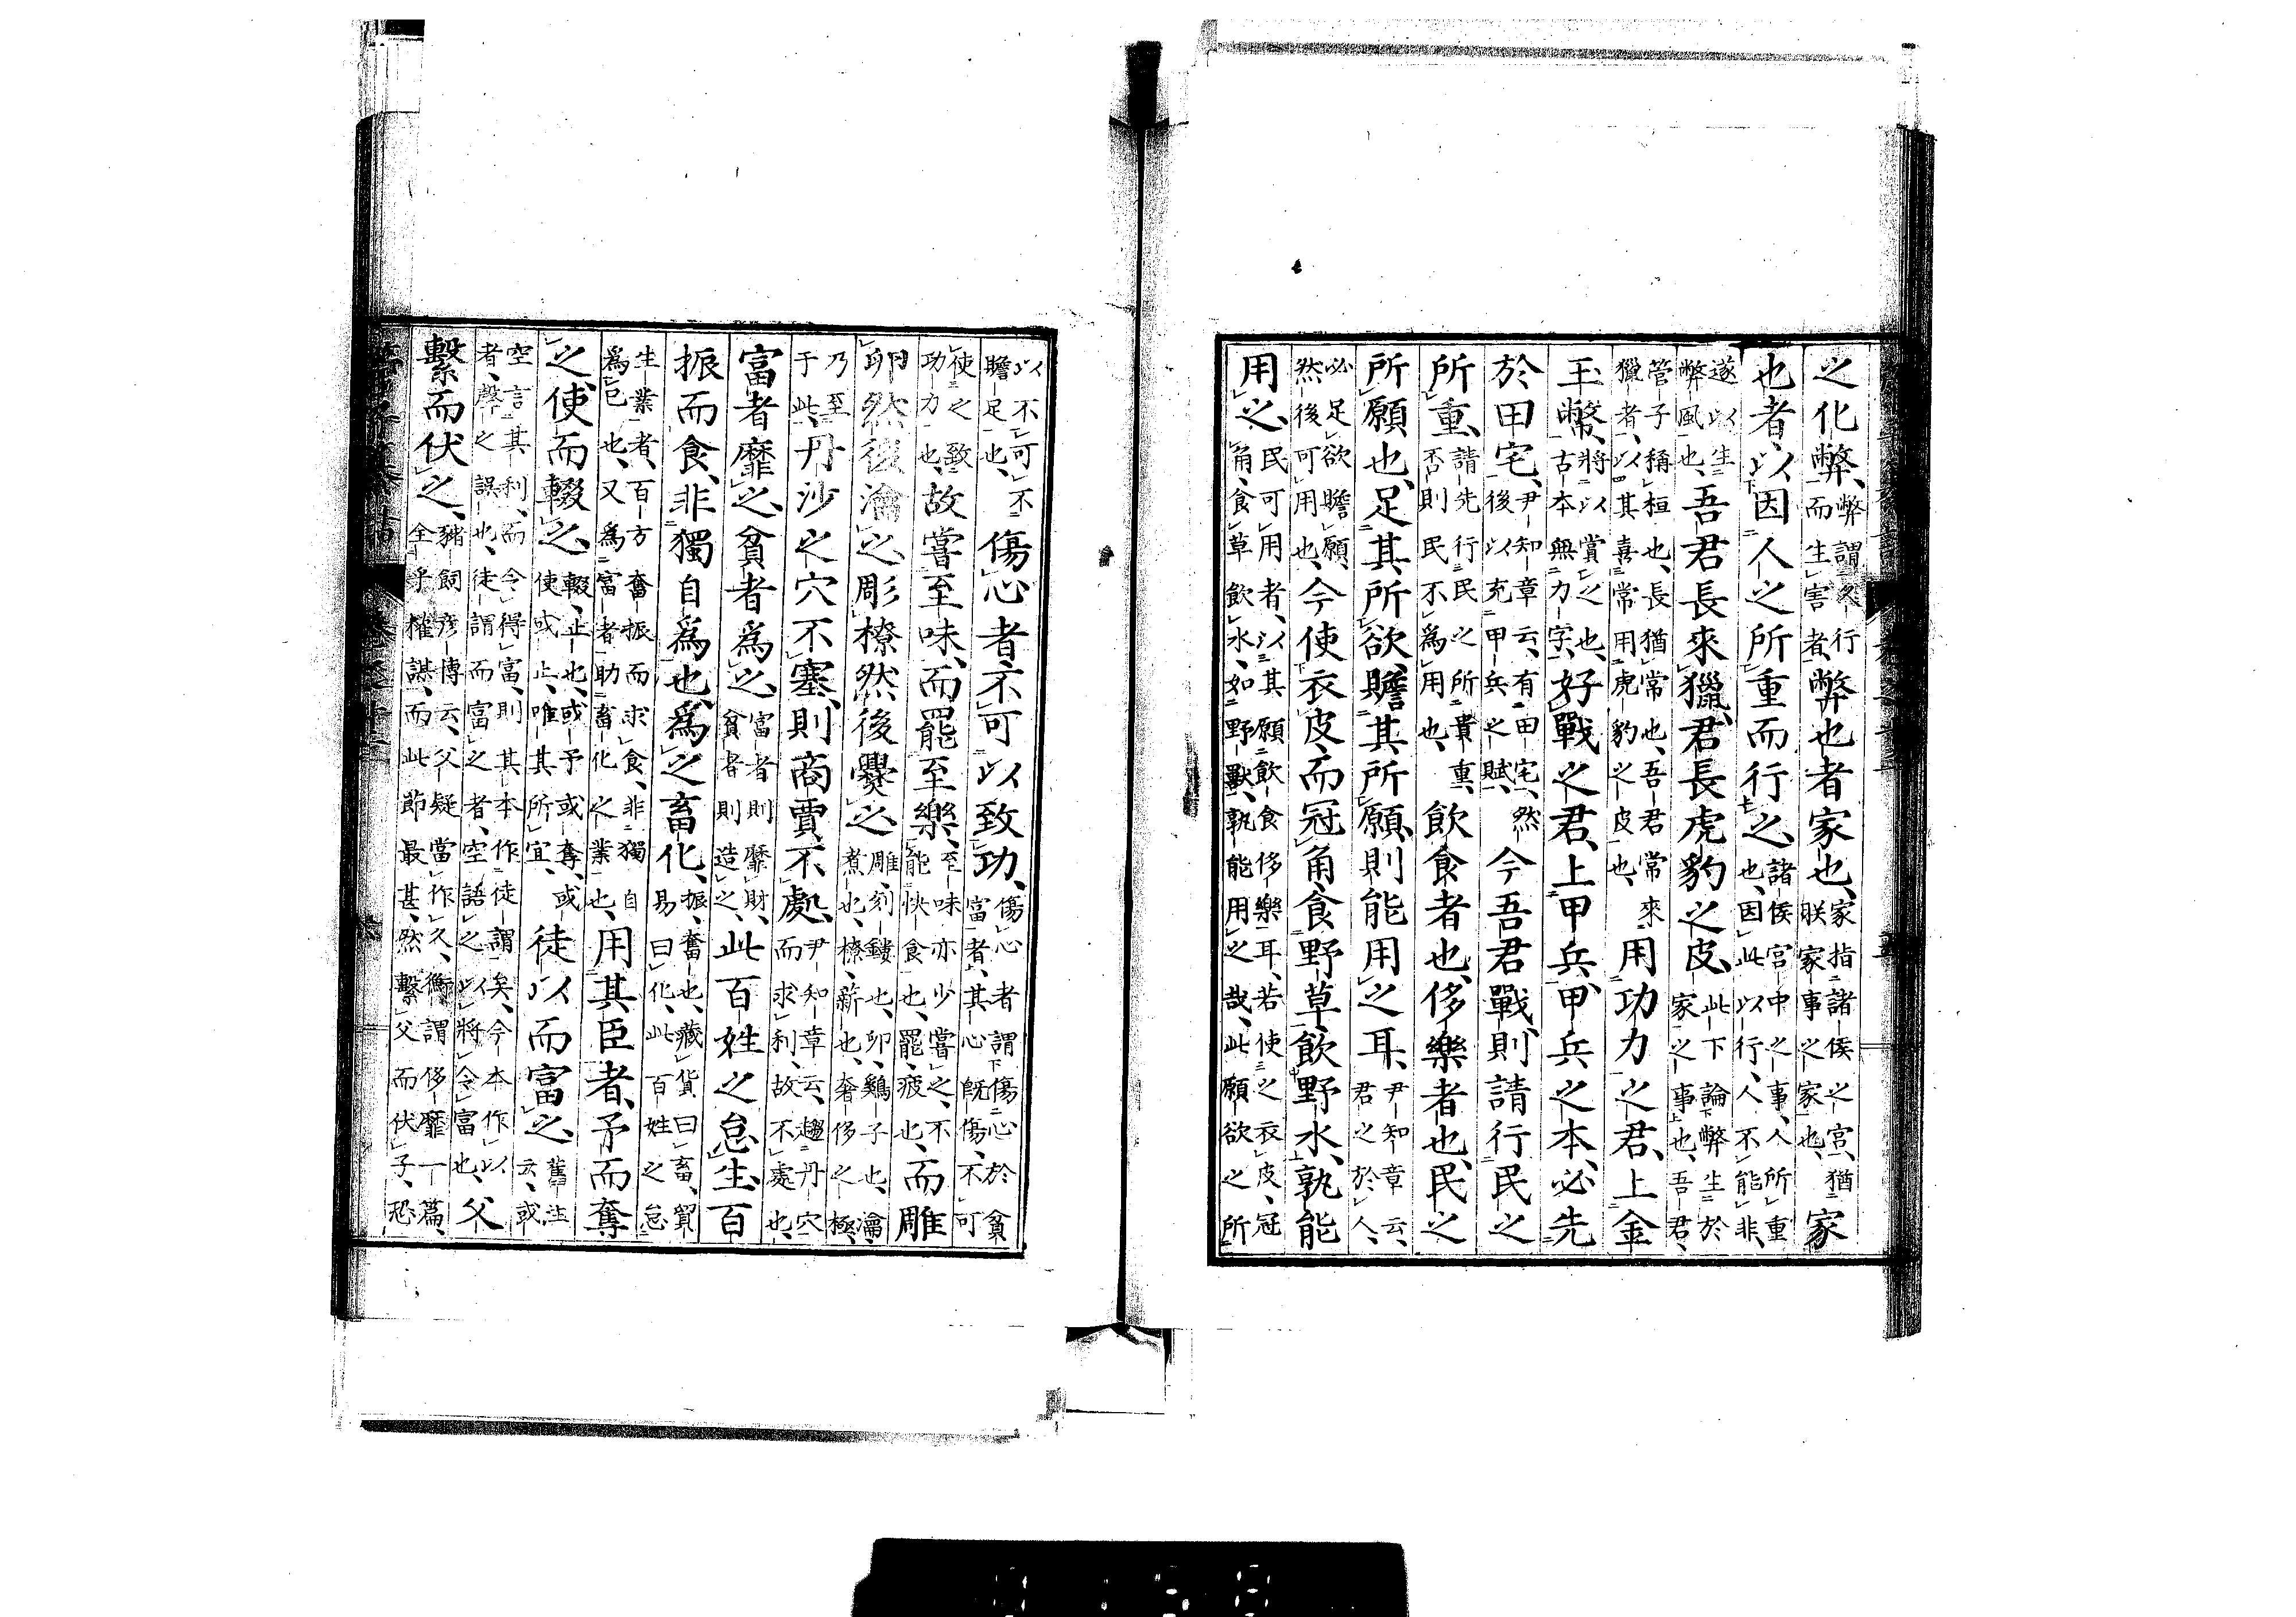 之化弊、弊謂久行而生害者、弊也者家也、家指諸侯之宮、猶朕家事之家也、家
也者、以因人之所重而行之、諸侯宮中之事、人所重也、因此以行、人不能非、
遂以生弊風也、吾君長來獵、君長虎豹之皮、此下論弊生於家之事也、吾君、
管子稱桓也、長猶常也、吾君常來獵者、將以其喜常用虎豹之皮也、用功力之君、上金
玉幣、將以賞之也、古本無力字、好戰之君、上甲兵、甲兵之本、必先
於田宅、尹知章云、有田宅、然後以充甲兵之賦、今吾君戰、則請行民之
所重、請先行民之所貴重、否則民不爲用也、飲食者也、侈樂者也、民之
所願也、足其所欲、贍其所願、則能用之耳、尹知章云、君之於人、
必足欲贍願、然後可用也、今使衣皮而冠角、食野草、飲野水、孰能
用之、民可用者、以其願飲食侈樂耳、若使之衣皮、冠角、食草飲水、如野獸、孰能用之哉、此願欲之所
以不可不贍足也、傷心者、不可以致功、傷心者謂傷心於貧富者、其心既傷、不可
使之致功力也、故嘗至味、而罷至樂、至味亦少嘗之、不能快食也、罷、疲也、而雕
卵然後瀹之、彫橑然後爨之、雕、刻鏤也、卵、鷄子也、瀹、煮也、橑、薪也、奢侈之極、
乃至于此、丹沙之穴不塞、則商賈不處、尹知章云、趨丹穴而求利、故不處也、
富者靡之、貧者爲之、富者則靡財、貧者則造之、此百姓之怠生、百
振而食、非獨自爲也、爲之畜化、振、奮也、藏貨曰畜、貿易曰化、此百姓之怠
生業者、百方奮振而求食、非獨自爲已也、又爲富者助畜化之業也、用其臣者、予而奪
之、使而輟之、輟、止也、或予或奪、或使或止、唯其所宜、徒以而富之、舊注云、或
空言其利、而令得富、則其本作徒謂矣、今本作以者、聲之誤也、徒謂而富之者、空語之以將令富也、父
繫而伏之、豬飼彥博云、父疑當作久、衡謂侈靡一篇、全乎權謀、而此節最甚、然繫父而伏子、恐